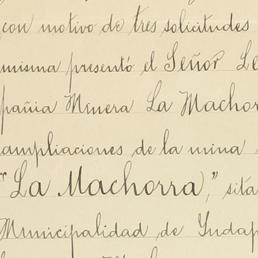 con motivo de tres solicitudes
misma presentó el Señor Le
pañia Minera La Machor
ampliaciones de la mina
"La Machorra," sita
Municipalidad de Indap